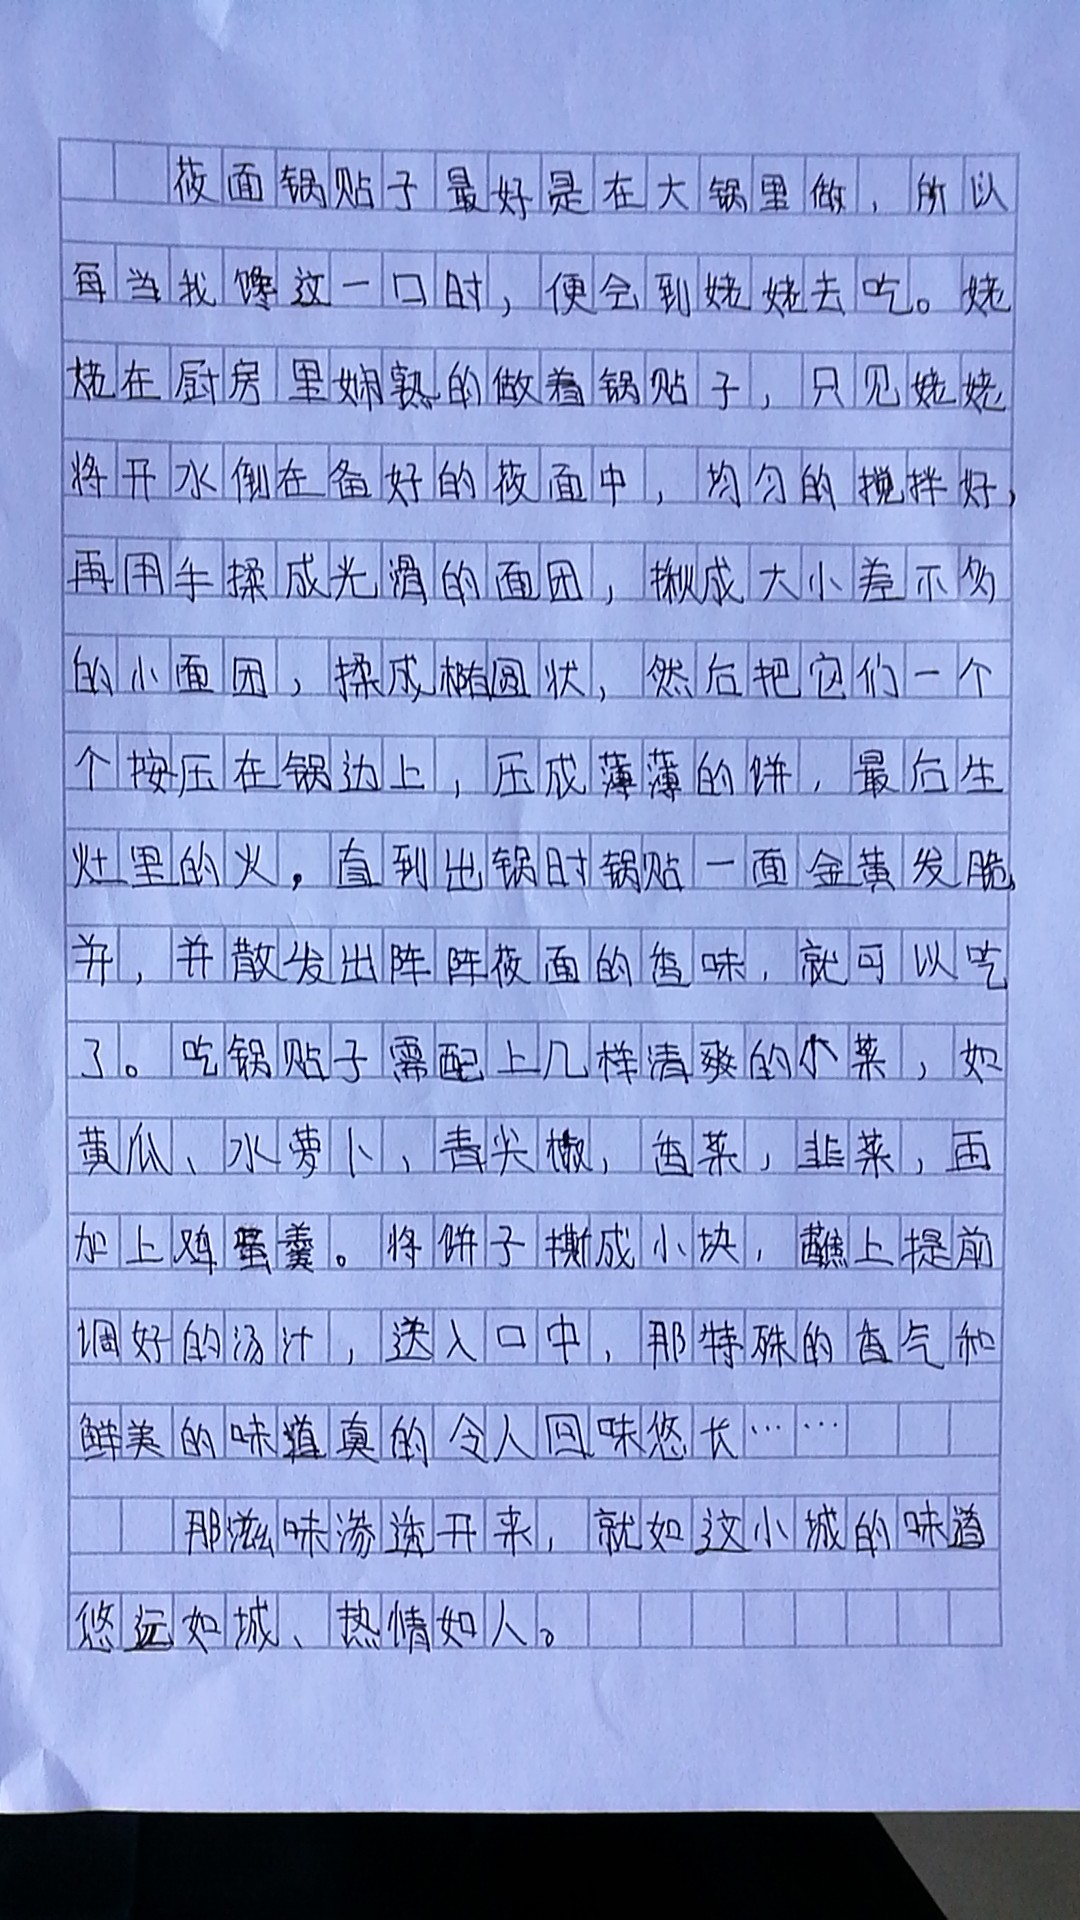 莜面锅贴子最好是在大锅里做，所以
每当我馋这一口时，便会到姥姥去吃。姥
姥在厨房里娴熟的做着锅贴子，只见姥姥
将开水倒在备好的莜面中，均匀的搅拌好，
再用手揉成光滑的面团，揪成大小差不多
的小面团，揉成椭圆状，然后把它们一个
个按压在锅边上，压成薄薄的饼，最后生
灶里的火，直到出锅时锅贴一面金黄发脆，
并，并散发出阵阵莜面的香味，就可以吃
了。吃锅贴子需配上几样清爽的小菜，如
黄瓜、水萝卜，青尖椒，香菜，韭菜，再
加上鸡蛋羹。将饼子撕成小块，蘸上提前
调好的汤汁，送入口中，那特殊的香气和
鲜美的味道真的令人回味悠长……
那滋味渗透开来，就如这小城的味道
悠远如城、热情如人。